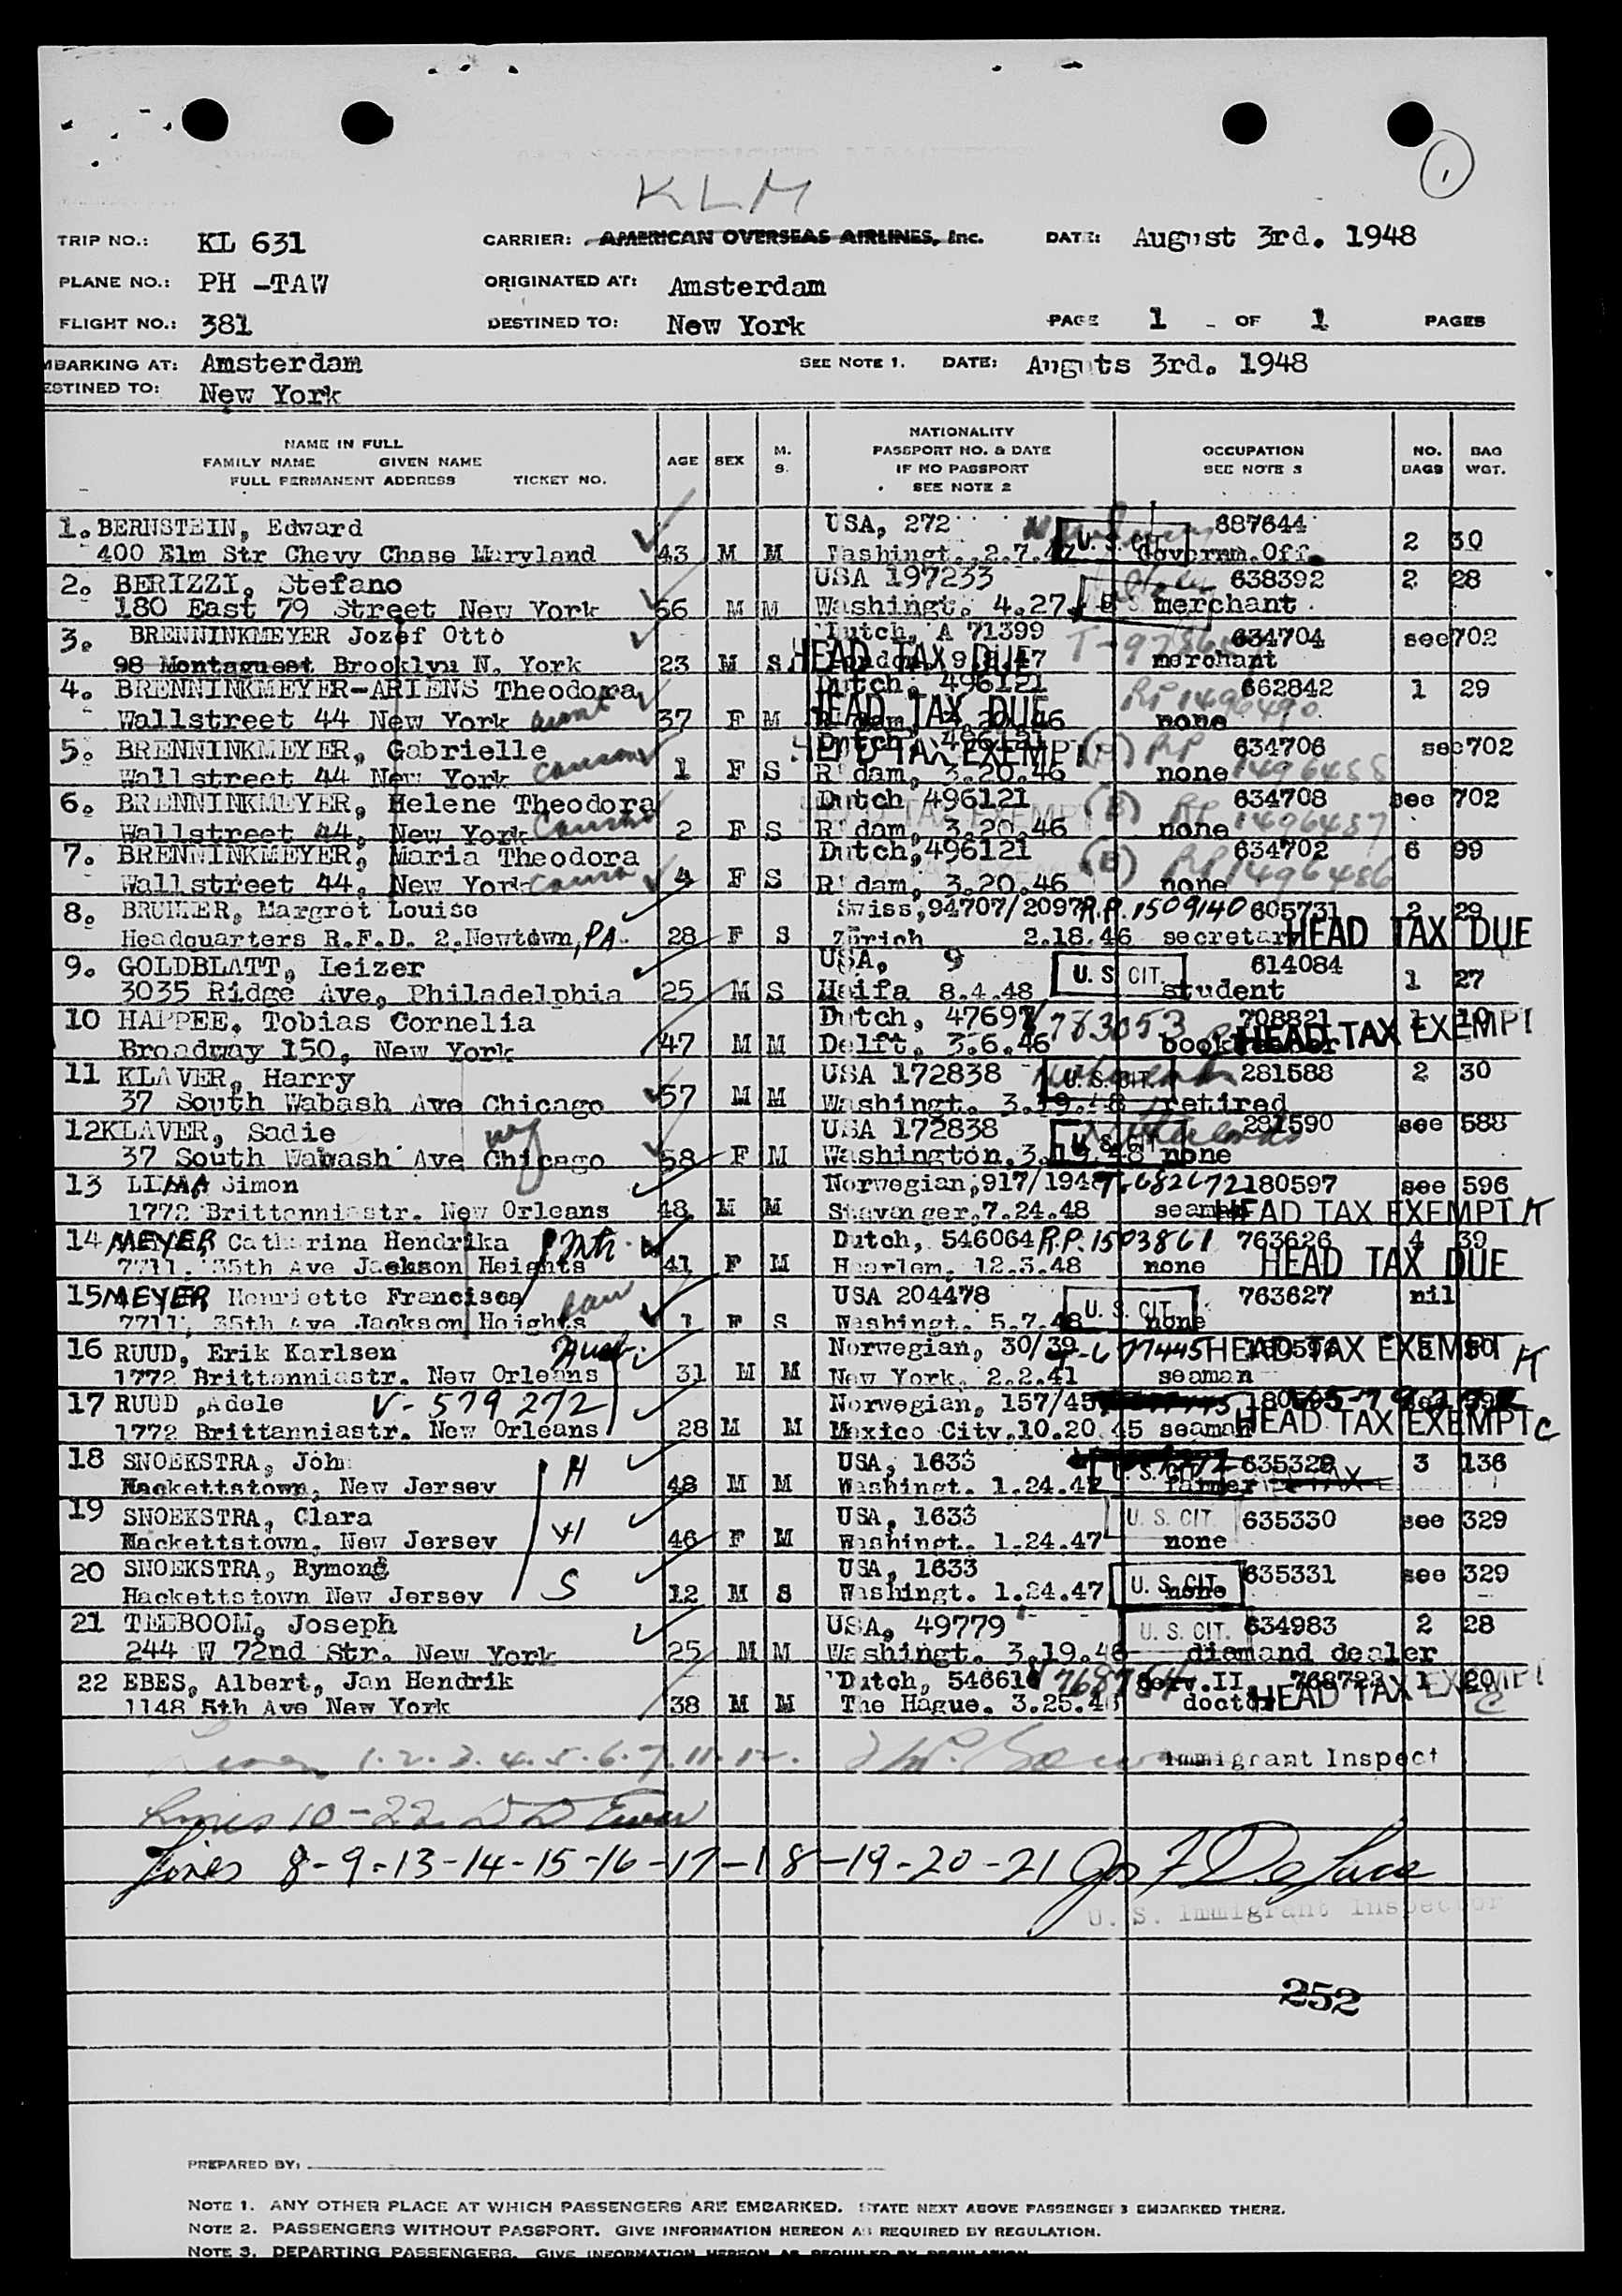 1
KLM
TRIP NO.: KL 631 CARRIER: AMERICAN OVERSEAS AIRLINES, Inc. DATE: August 3rd. 1948
PLANE NO.: PH -TAW ORIGINATED AT: Amsterdam
FLIGHT NO.: 381 DESTINED TO: New York PAGE 1 OF 1 PAGES
MBARKING AT: Amsterdam SEE NOTE 1. DATE: Anguts 3rd. 1948
ESTINED TO: New York
NAME IN FULL
FAMILY NAME GIVEN NAME
FULL PERMANENT ADDRESS TICKET NO.
AGE SEX M. S.
NATIONALITY
PASSPORT NO. & DATE
IF NO PASSPORT
SEE NOTE 2
OCCUPATION
SEE NOTE 3
NO. BAGS
BAG WGT.
1. BERNSTEIN, Edward USA, 272 687644
400 Elm Str Chevy Chase Maryland 43 M M Washingt. 2.7.47 U. S. CIT. Governm.Off. 2 30
2. BERIZZI, Stefano USA 197233 638392 2 28
180 East 79 Street New York 66 M M Washingt. 4.27. merchant
3. BRENNINKMEYER Jozef Otto Dutch, A 71399 634704 see 702
98 Montaguest Brooklyn N. York 23 M S HEAD TAX DUE merchant
4. BRENNINKMEYER-ARIENS Theodora Dutch, 496121 RP 1496490 662842 1 29
Wallstreet 44 New York aunt 37 F M HEAD TAX DUE R'dam, 3.20.46 none
5. BRENNINKMEYER, Gabrielle Dutch, 496121 RP 634706 see 702
Wallstreet 44 New York cousin 1 F S HEAD TAX EXEMPT R'dam, 3.20.46 none 1496488
6. BRENNINKMEYER, Helene Theodora Dutch 496121 (B) RP 634708 see 702
Wallstreet 44, New York cousin 2 F S HEAD TAX EXEMPT R'dam, 3.20.46 none 1496487
7. BRENNINKMEYER, Maria Theodora Dutch, 496121 (B) RP 634702 6 99
Wallstreet 44, New York 4 F S R'dam, 3.20.46 none 1496486
8. BRUNNER, Margrot Louise Swiss, 94707/2097 R.P. 1509140 605731 2 29
Headquarters R.F.D. 2.Newtown, PA. 28 F S Zürich 2.18.46 secretary HEAD TAX DUE
9. GOLDBLATT, Leizer USA, 9 614084
3035 Ridge Ave, Philadelphia 25 M S Haifa 8.4.48 U. S. CIT. student 1 27
10 HAPPEE, Tobias Cornelia Dutch, 47697 V 783053 708821 1 10
Broadway 150, New York 47 M M Delft, 3.6.46 bookkeeper HEAD TAX EXEMPT
11 KLAVER, Harry USA 172838 U. S. CIT. 281588 2 30
37 South Wabash Ave Chicago 57 M M Washingt. 3.19.48 retired
12 KLAVER, Sadie wf USA 172838 281590 see 588
37 South Wabash Ave Chicago 58 F M Washington, 3.19.48 U. S. CIT. none
13 Simon Norwegian, 917/1948 T-682672 180597 see 596
1772 Brittanniastr. New Orleans 48 M M Stavanger, 7.24.48 seaman HEAD TAX EXEMPT K
14 MEYER Catharina Hendrika Mth. Dutch, 546064 R.P. 1503861 763626 4 39
7711, 35th Ave Jackson Heights 41 F M Haarlem, 12.3.48 none HEAD TAX DUE
15 MEYER Henriette Francisca dau USA 204478 763627 nil
7711, 35th Ave Jackson Heights 1 F S Washingt. 5.7.48 U. S. CIT. none
16 RUUD, Erik Karlsen Husb. Norwegian, 30/39 T-677445 HEAD TAX EXEMPT K
1772 Brittanniastr. New Orleans 31 M M New York, 2.2.41 seaman
17 RUUD ,Adele V-579272 Norwegian, 157/45
1772 Brittanniastr. New Orleans 28 M M Mexico City.10.20.45 seaman HEAD TAX EXEMPT C
18 SNOEKSTRA, John H USA, 1633 635329 3 136
Hackettstown, New Jersey 48 M M Washingt. 1.24.47 U. S. CIT. farmer
19 SNOEKSTRA, Clara W USA, 1633 U. S. CIT. 635330 see 329
Hackettstown, New Jersey 46 F M Washingt. 1.24.47 none
20 SNOEKSTRA, Rymond S USA, 1633 635331 see 329
Hackettstown New Jersey 12 M S Washingt. 1.24.47 U. S. CIT. none
21 TEEBOOM, Joseph USA, 49779 U. S. CIT. 634983 2 28
244 W 72nd Str. New York 25 M M Washingt. 3.19.48 diamand dealer
22 EBES, Albert, Jan Hendrik Dutch, 54661 V 768764 serv.II 768722 1 20
1148 5th Ave New York 38 M M The Hague. 3.25.46 doctor HEAD TAX EXEMPT C
Lines 1.2.3.4.5.6.7.11.12. Immigrant Inspect
Lines 10-22
Lines 8-9-13-14-15-16-17-18-19-20-21
U. S. Immigrant Inspector
252
PREPARED BY:
NOTE 1. ANY OTHER PLACE AT WHICH PASSENGERS ARE EMBARKED. STATE NEXT ABOVE PASSENGERS EMBARKED THERE.
NOTE 2. PASSENGERS WITHOUT PASSPORT. GIVE INFORMATION HEREON AS REQUIRED BY REGULATION.
NOTE 3. DEPARTING PASSENGERS. GIVE INFORMATION HEREON AS REQUIRED BY REGULATION